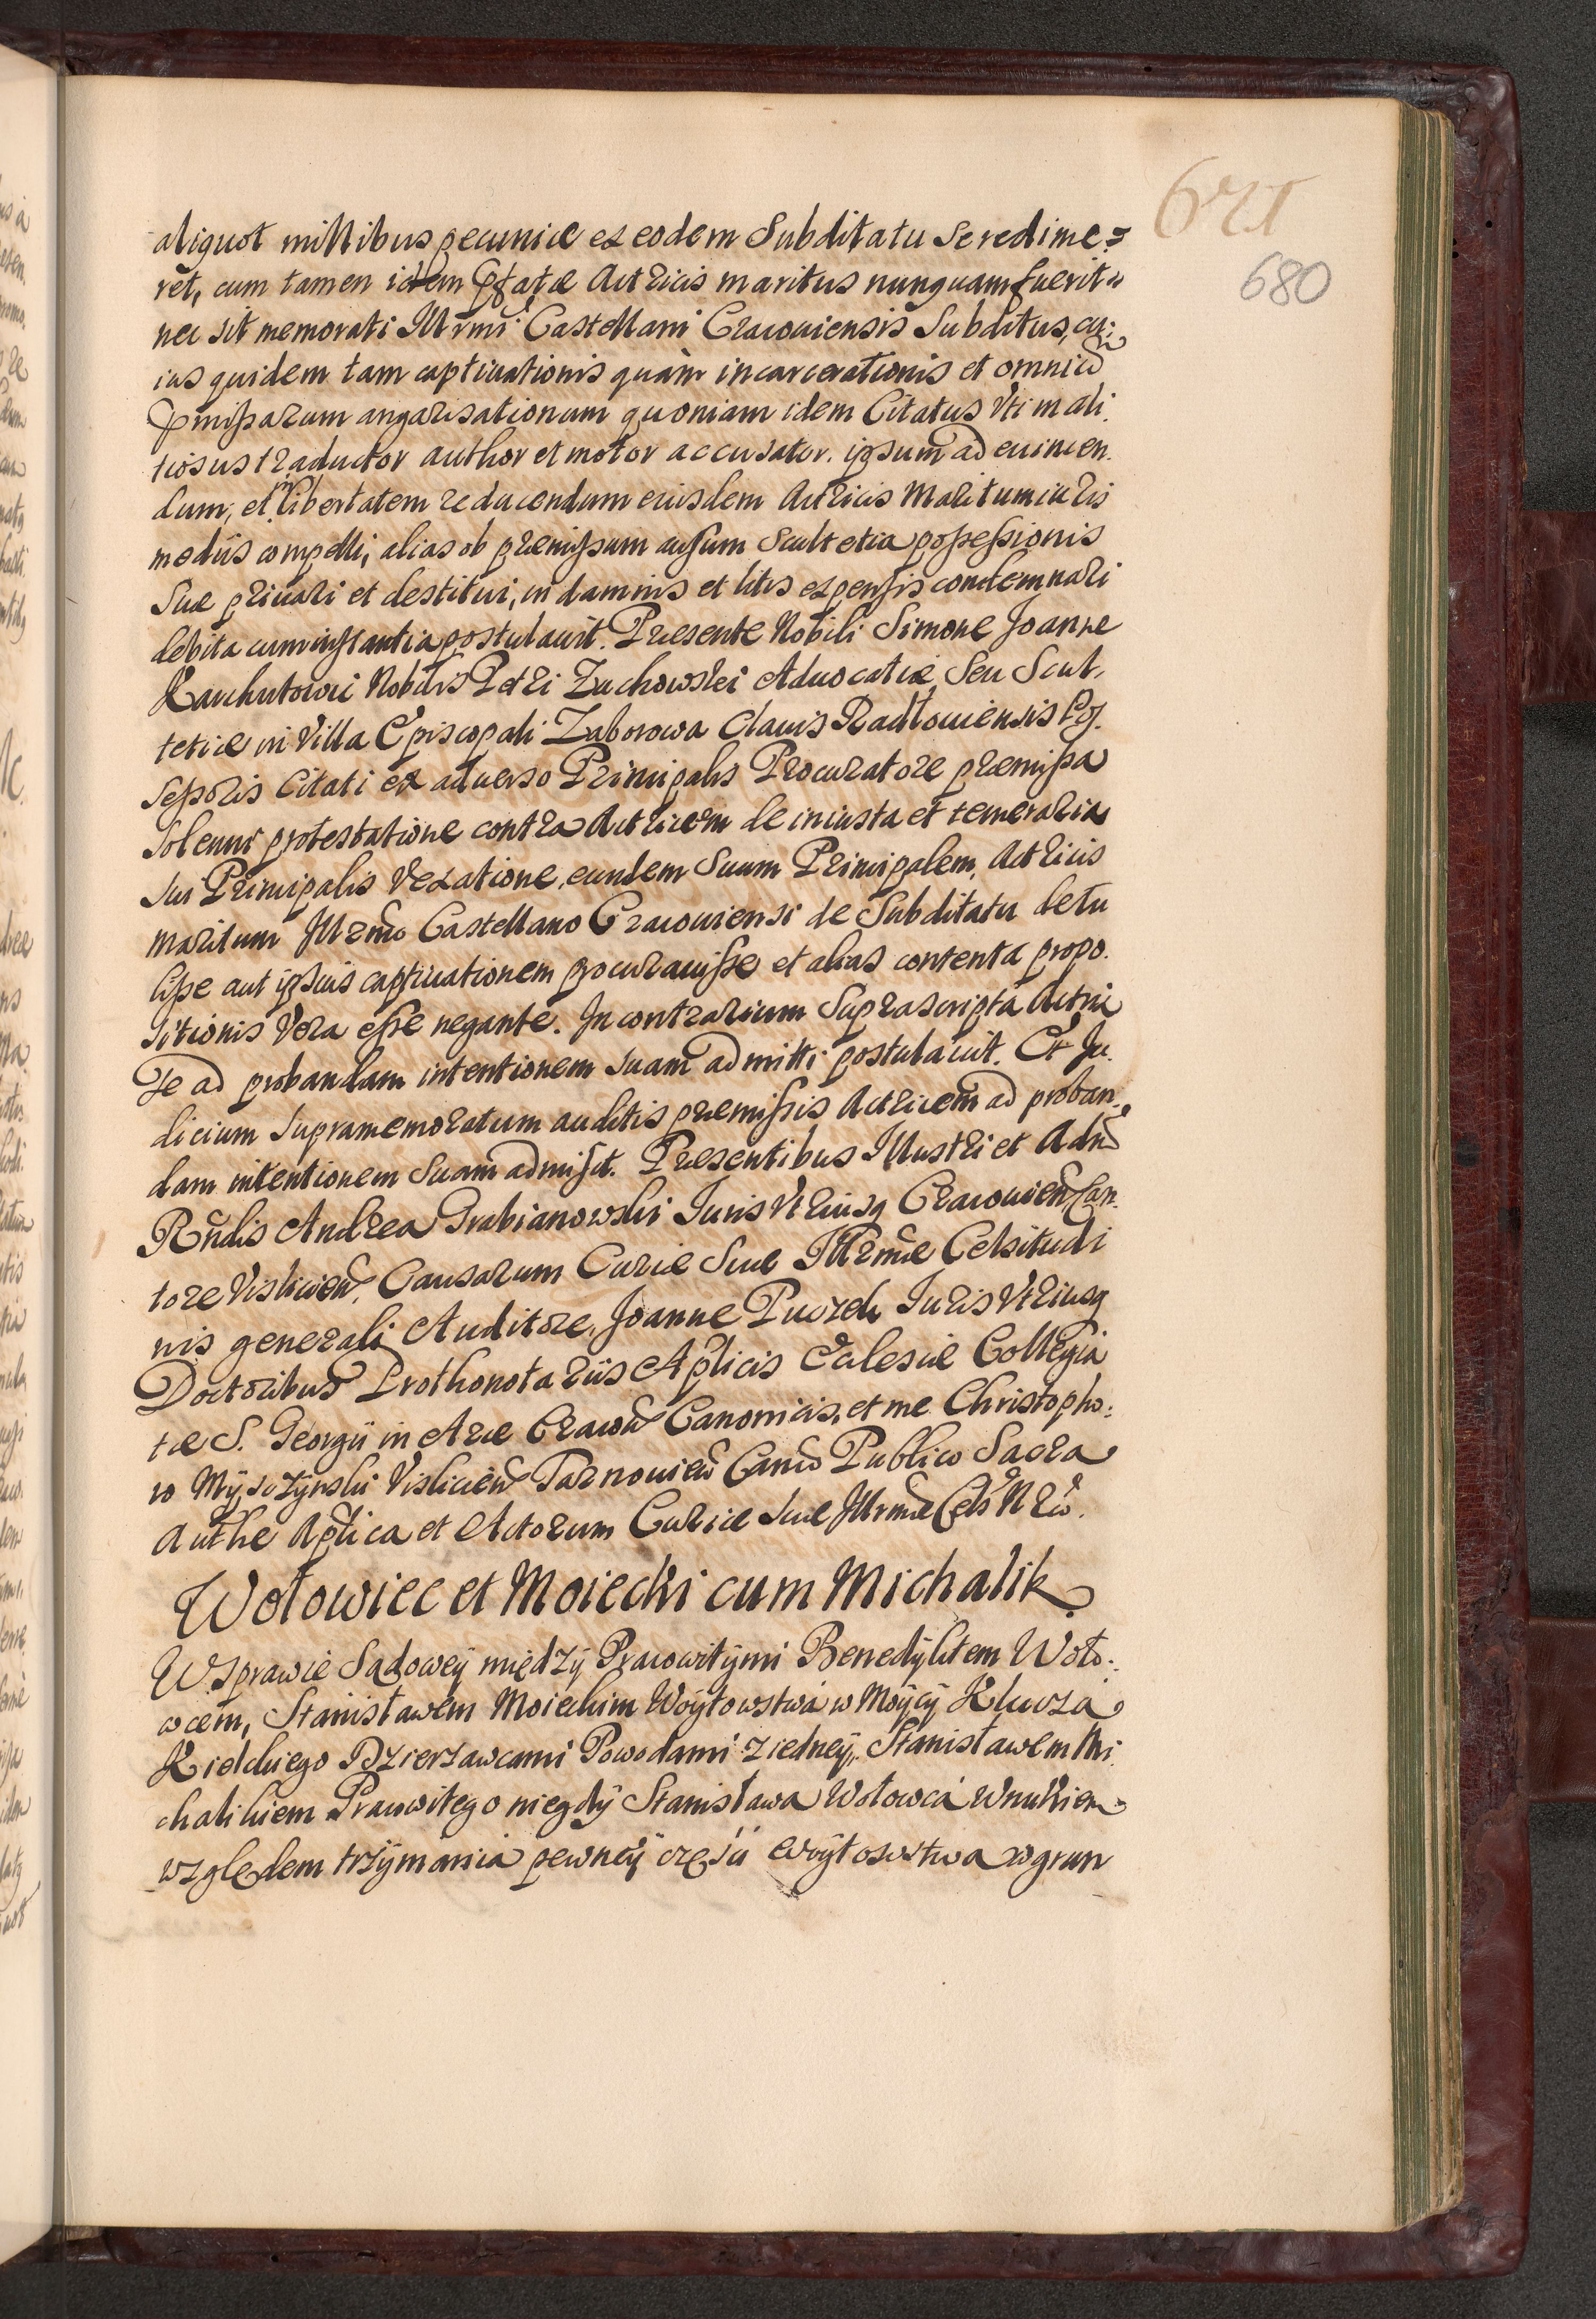 621
680
aliquot millibus pecuniæ ex eodem Subditatu se redime=
ret, cum tamen idem Pfatæ Actricis maritus nunquam fuerit
nec sit memorati Illrmi Castellani Cracouiensis Subditus, cu:
ius quidem tam captiuationis quàm incarcerationis et omniũ
Pmissarum angarisationum quoniam idem Citatus Vti mali
tiosus traductor author et motor accusatur. ipsum ad euincen.
dum, et in libertatem reducendum eiusdem Actricis Maritum iuris
mediis compelli, alias ob præmissum ausum Scultetia possessionis
Suæ priuari et destitui, in damnis et litis expensis condemnari
debita cum instantia postulauit. Præsente Nobili Simone Joanne
Kauchutowic Nobilis Petri Zuchowski Aduocatiæ Seu Scul.
tetiæ in Villa Episcopali Zaborowa Clauis Radłouiensis Pos.
sessoris Citati ex aduerso Principalis Procuratore præmissa
Solenni protestatione contra Actricem de iniusta et temeraria
sui Principalis Vexatione, eundem Suum Principalem, Actricis
maritum Illrmo Castellano Cracouiensi de Subditatu detu
lisse aut ipsius captiuationem procurauisse et alias contenta propo.
sitionis Vera esse negante. In contrarium Suprascripta Actrix
se ad probandam intentionem suam admitti postulauit. Et Ju.
dicium Supramemoratum auditis præmissis Actricem ad proban.
dam intentionem Suam admisit. Præsentibus Illustri et Adm̃
Rñdis Andrea Grabianowski Iuris Vtriusq Cracouien̄ Can.
tore Vislicien̄, Causarum Curiæ Suæ Illrmæ Celsitudi
nis generali Auditore, Joanne Puczek Iuris Vtriusq
Doctoribus Prothonotariis Aplicis Ecclesiæ Collegia
tæ S. Georgii in Arce Cracou̅ Canonicis, et me Christopho:
ro Myszczynski Vislicien̄ Tarnouien̄ Canco Publico Sacra
Authe Aplica et Actorum Curiæ Suæ Illrmæ Cels Nrio.
Wołowiec et Moiecki cum Michalik
W sprawie Sądowey między Pracowitymi Benedyktem Woło:
wcem, Stanisławem Moieckim Woytowstwa w Moycy Klucza
Kieleckiego Dzierzawcami Powodami z iedney, Stanisławem Mi
chalikiem Pracowitego niegdy Stanisława Wołowca Wnukiem
względem trzymania pewney części Woytowstwa w grun